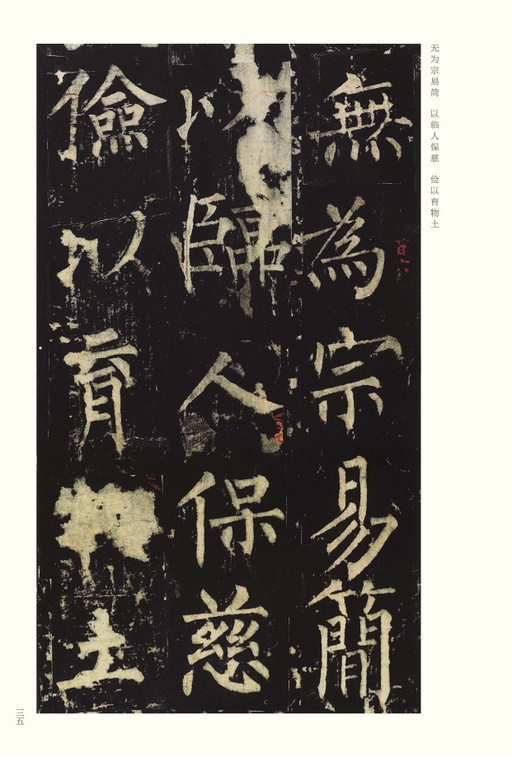 无为宗易简 以临人保慈 俭以育物土
無為宗易簡
以臨人保慈
儉以育物土
三五